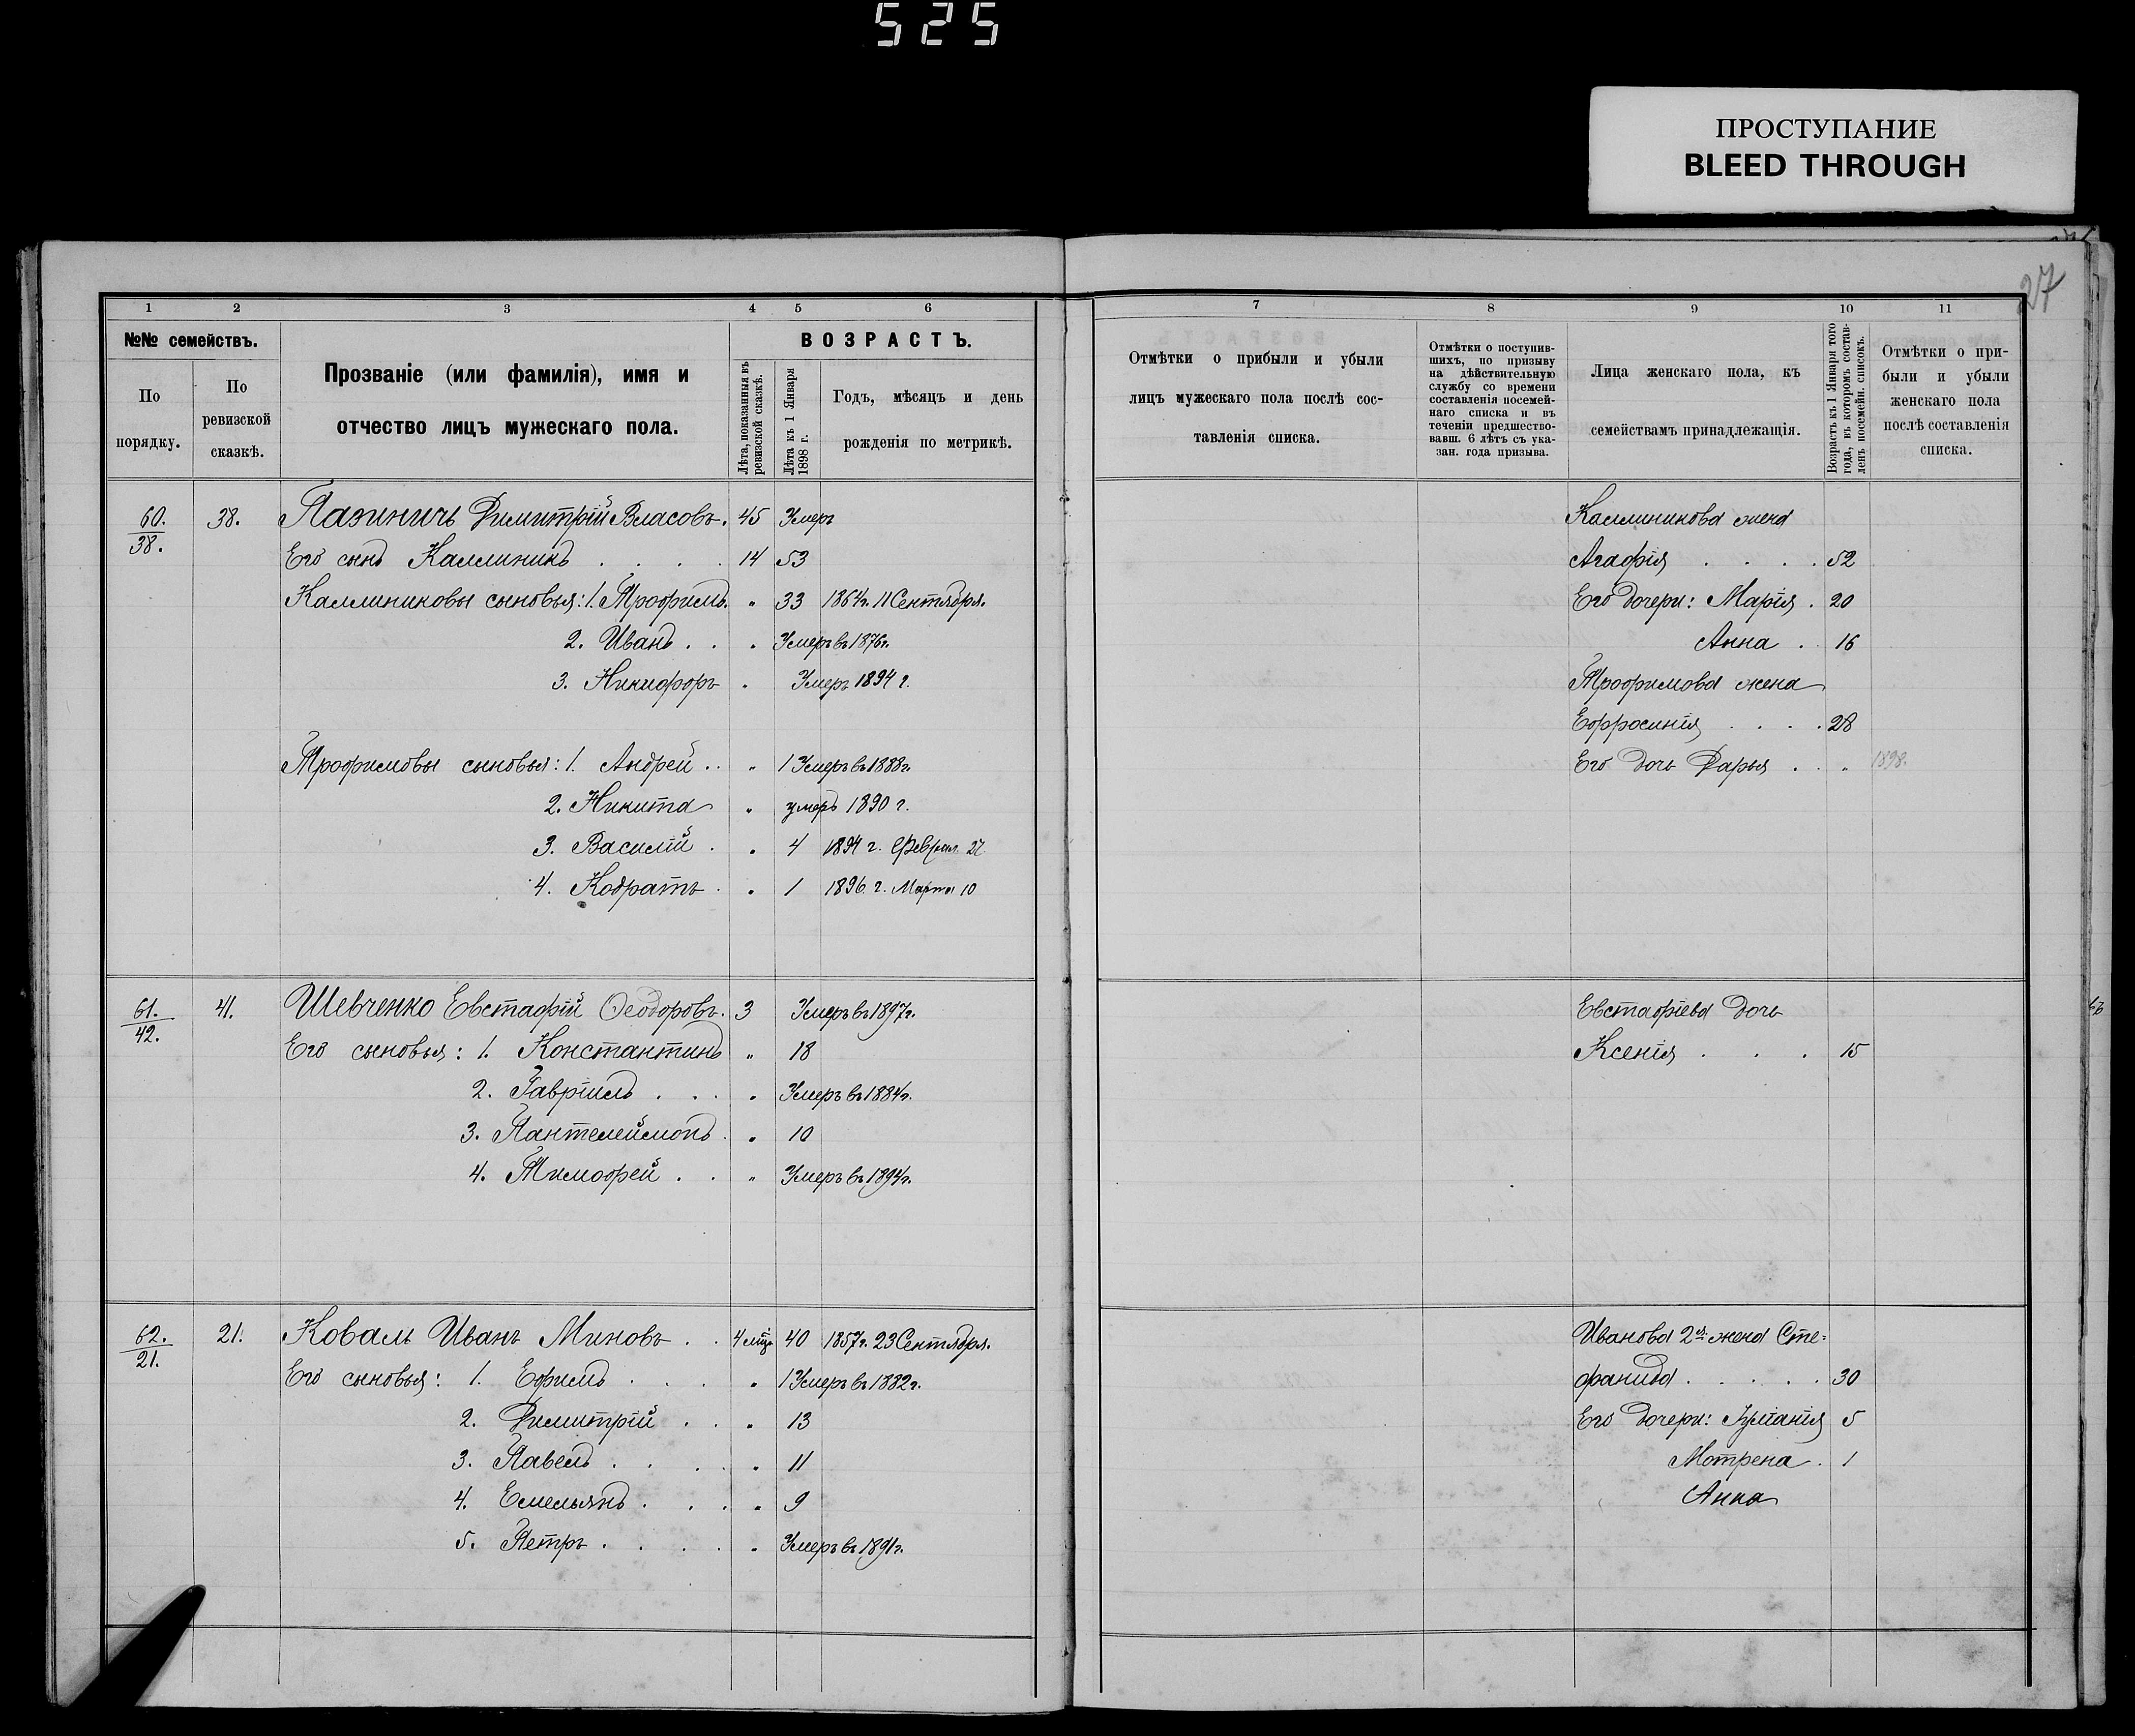 525
ПРОСТУПАНИЕ
BLEED THROUGH
27
1 2 3 4 5 6
№№ семействъ.
По порядку.
По ревизской сказкѣ.
Прозваніе (или фамилія), имя и
отчество лицъ мужескаго пола.
ВОЗРАСТЪ.
Лѣта, показанныя въ ревизской сказкѣ.
Лѣта къ 1 Января 1898 г.
Годъ, мѣсяцъ и день
рожденія по метрикѣ.
60. 38. 38. Пазиничъ Димитрій Власовъ. 45 Умеръ
Его сынъ Каллиникъ . . . . 14 53
Каллиниковы сыновья: 1. Трофимъ. „ 33 1864г. 11 Сентября.
2. Иванъ . . „ Умеръ въ 1876г.
3. Никифоръ „ Умеръ 1894 г.
Трофимовы сыновья: 1. Андрей . . „ 1 Умеръ въ 1888г.
2. Никита „ умеръ 1890 г.
3. Василій . „ 4 1894 г. Феврал. 27
4. Кодратъ . „ 1 1896. г. Марта 10
61. 42. 41. Шевченко Евстафій Ѳеодоровъ. 3 Умеръ въ 1897г.
Его сыновья: 1. Константинъ „ 18
2. Гавріилъ . . . „ Умеръ въ 1884г.
3. Пантелеймонъ . „ 10
4. Тимофей . . „ Умеръ въ 1894г.
62. 21. 21. Коваль Иванъ Миновъ . . 4 мѣц. 40 1857г. 23 Сентября.
Его сыновья: 1. Ефимъ . . . . „ 1 Умеръ въ 1882г.
2. Димитрій . . „ 13
3. Павелъ . . . . „ 11
4. Емельянъ . . . „ 9
5. Петръ . . . . . „ Умеръ въ 1891г.
7 8 9 10 11
Отмѣтки о прибыли и убыли
лицъ мужескаго пола послѣ сос-
тавленія списка.
Отмѣтки о поступив-
шихъ, по призыву
на дѣйствительную
службу со времени
составленія посемей-
наго списка и въ
теченіи предшество-
вавш. 6 лѣтъ съ ука-
зан. года призыва.
Лица женскаго пола, къ
семействамъ принадлежащія.
Возрастъ къ 1 Января того
года, въ которомъ состав-
ленъ посемейн. списокъ.
Отмѣтки о при-
были и убыли
женскаго пола
послѣ составленія
списка.
Каллиникова жена
Агафія . . . . 52
Его дочери: Марія . 20
Анна . 16
Трофимова жена
Ефросинія . . . . 28
Его дочь Дарья . . „ 1898.
Евстафіева дочь
Ксенія . . . 15
Иванова 2я жена Сте-
фанида . . . . . 30
Его дочери: Іуліанія 5
Мотрена . 1
Анна